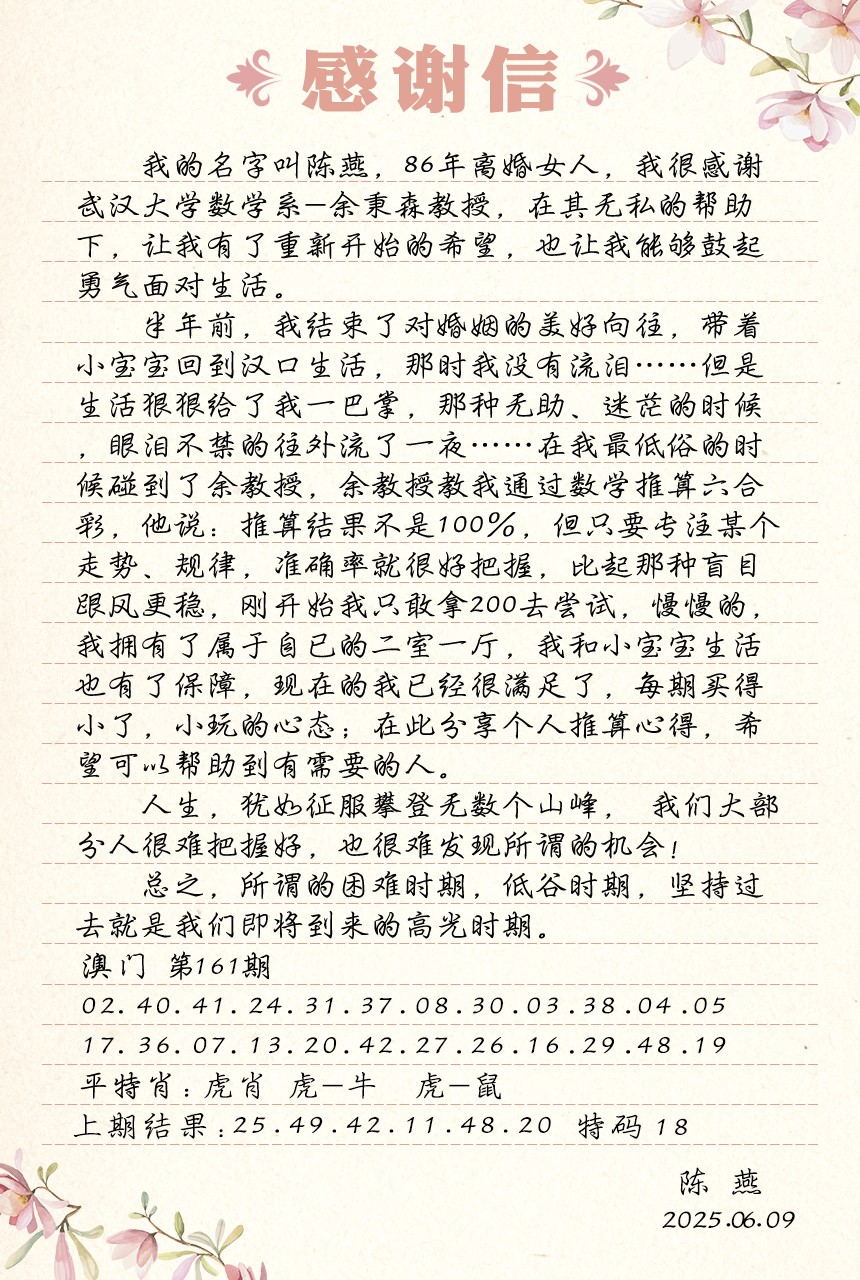 感谢信
我的名字叫陈燕，86年离婚女人，我很感谢
武汉大学数学系—余秉森教授，在其无私的帮助
下，让我有了重新开始的希望，也让我能够鼓起
勇气面对生活。
半年前，我结束了对婚姻的美好向往，带着
小宝宝回到汉口生活，那时我没有流泪……但是
生活狠狠给了我一巴掌，那种无助、迷茫的时候
，眼泪不禁的往外流了一夜……在我最低俗的时
候碰到了余教授，余教授教我通过数学推算六合
彩，他说：推算结果不是100%，但只要专注某个
走势、规律，准确率就很好把握，比起那种盲目
跟风更稳，刚开始我只敢拿200去尝试，慢慢的，
我拥有了属于自已的二室一厅，我和小宝宝生活
也有了保障，现在的我已经很满足了，每期买得
小了，小玩的心态；在此分享个人推算心得，希
望可以帮助到有需要的人。
人生，犹如征服攀登无数个山峰， 我们大部
分人很难把握好，也很难发现所谓的机会！
总之，所谓的困难时期，低谷时期，坚持过
去就是我们即将到来的高光时期。
澳门 第161期
02.40.41.24.31.37.08.30.03.38.04.05
17.36.07.13.20.42.27.26.16.29.48.19
平特肖：虎肖 虎—牛 虎—鼠
上期结果：25.49.42.11.48.20 特码18
陈 燕
2025.06.09